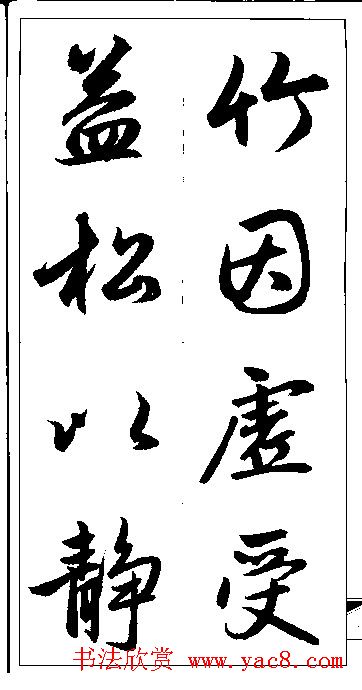 竹因虚受
益松以静
书法欣赏 www.yac8.com